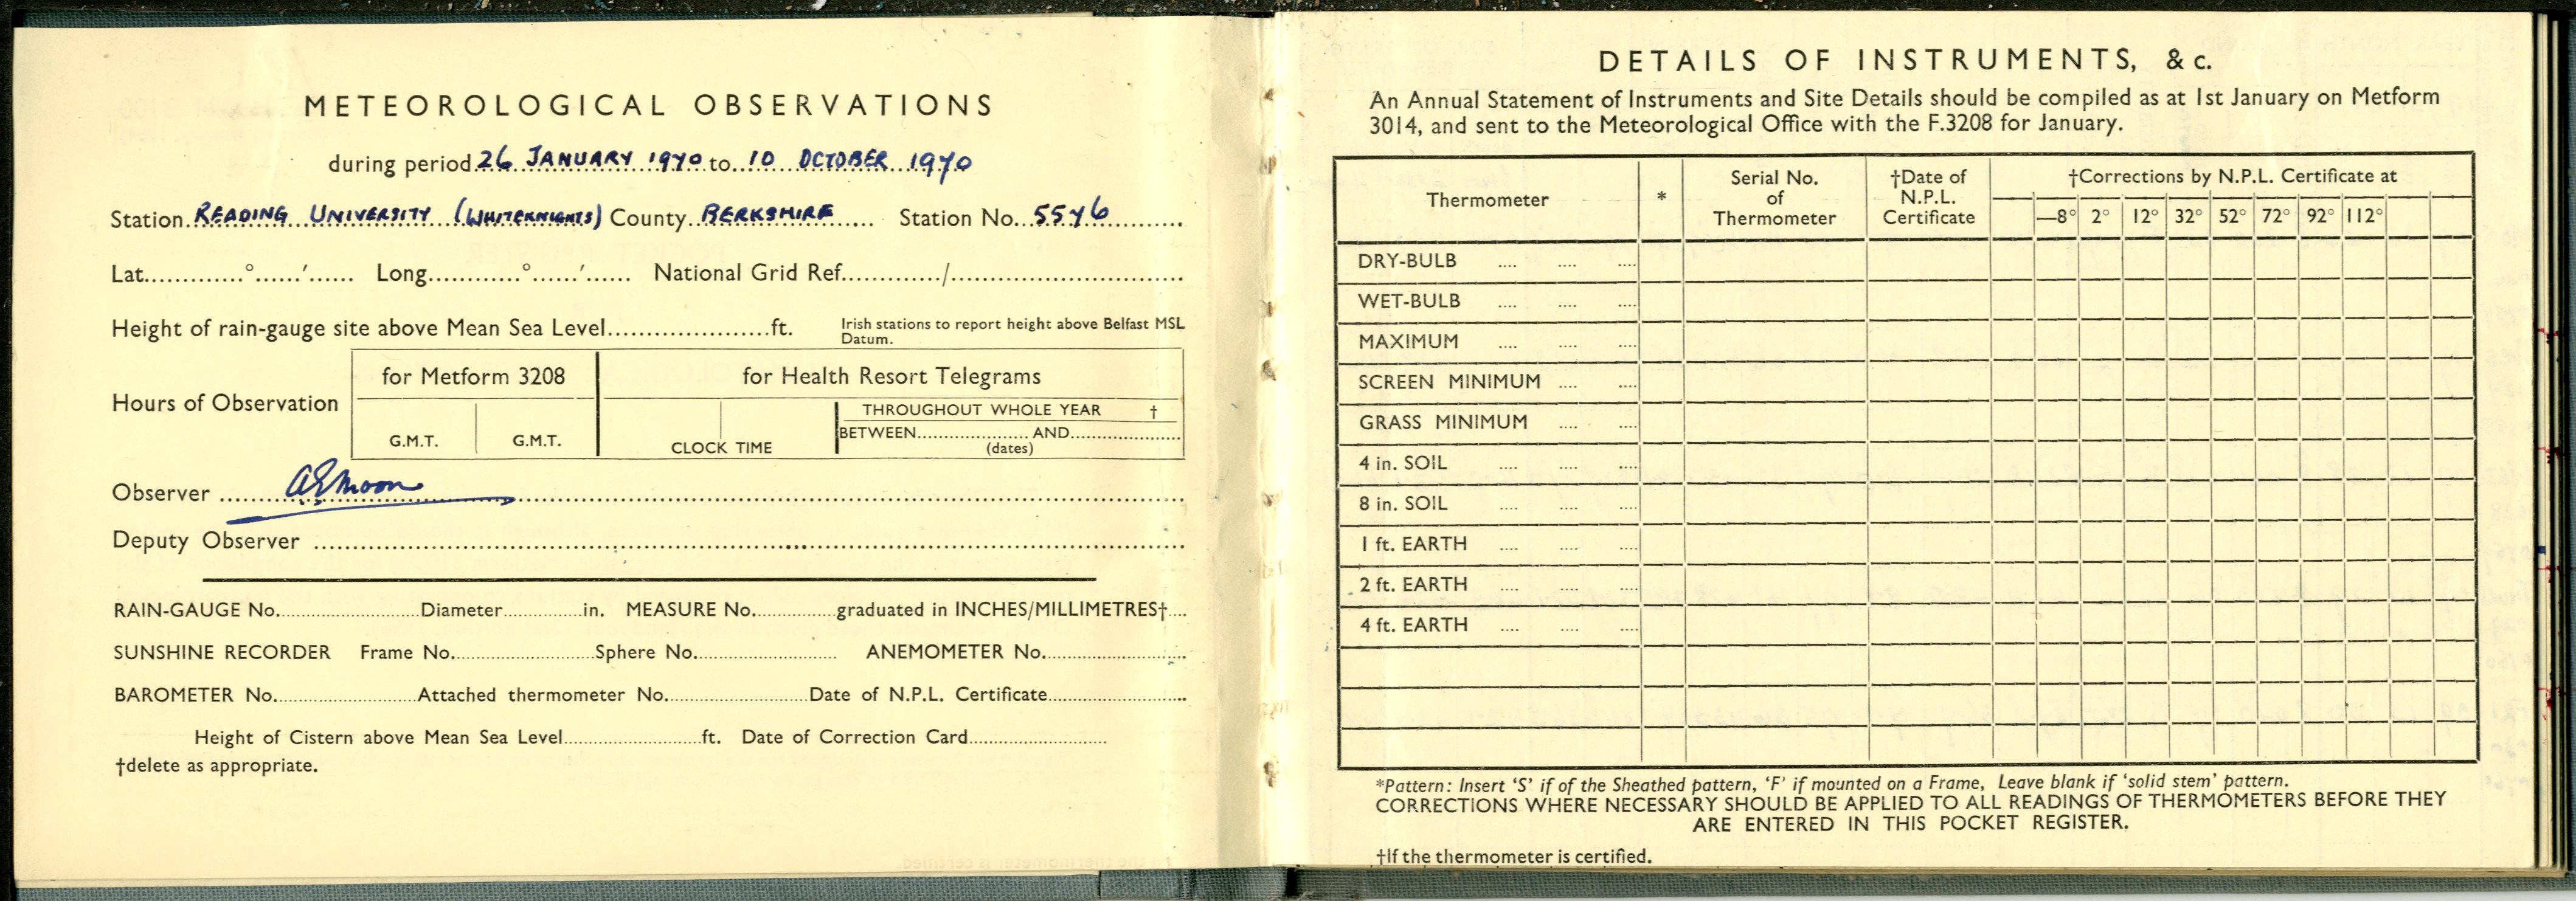 METEOROLOGICAL OBSERVATIONS
during period 26 JANUARY 1970 to 10 OCTOBER 1970
Station READING UNIVERSITY (WHITEKNIGHTS) County BERKSHIRE Station No. 5576
Lat. ° ′ Long. ° ′ National Grid Ref. /
Height of rain-gauge site above Mean Sea Level ft. Irish stations to report height above Belfast MSL
Datum.
for Metform 3208 for Health Resort Telegrams
Hours of Observation
THROUGHOUT WHOLE YEAR †
BETWEEN AND
G.M.T. G.M.T. CLOCK TIME (dates)
Observer A E Moon
Deputy Observer
RAIN-GAUGE No. Diameter in. MEASURE No. graduated in INCHES/MILLIMETRES†
SUNSHINE RECORDER Frame No. Sphere No. ANEMOMETER No.
BAROMETER No. Attached thermometer No. Date of N.P.L. Certificate
Height of Cistern above Mean Sea Level ft. Date of Correction Card
†delete as appropriate.
DETAILS OF INSTRUMENTS, & c.
An Annual Statement of Instruments and Site Details should be compiled as at 1st January on Metform
3014, and sent to the Meteorological Office with the F.3208 for January.
Thermometer * Serial No. of Thermometer †Date of N.P.L. Certificate †Corrections by N.P.L. Certificate at
—8° 2° 12° 32° 52° 72° 92° 112°
DRY-BULB .... .... ....
WET-BULB .... .... ....
MAXIMUM .... .... ....
SCREEN MINIMUM .... ....
GRASS MINIMUM .... ....
4 in. SOIL .... .... ....
8 in. SOIL .... .... ....
1 ft. EARTH .... .... ....
2 ft. EARTH .... .... ....
4 ft. EARTH .... .... ....
*Pattern: Insert ‘S’ if of the Sheathed pattern, ‘F’ if mounted on a Frame, Leave blank if ‘solid stem’ pattern.
CORRECTIONS WHERE NECESSARY SHOULD BE APPLIED TO ALL READINGS OF THERMOMETERS BEFORE THEY
ARE ENTERED IN THIS POCKET REGISTER.
†If the thermometer is certified.